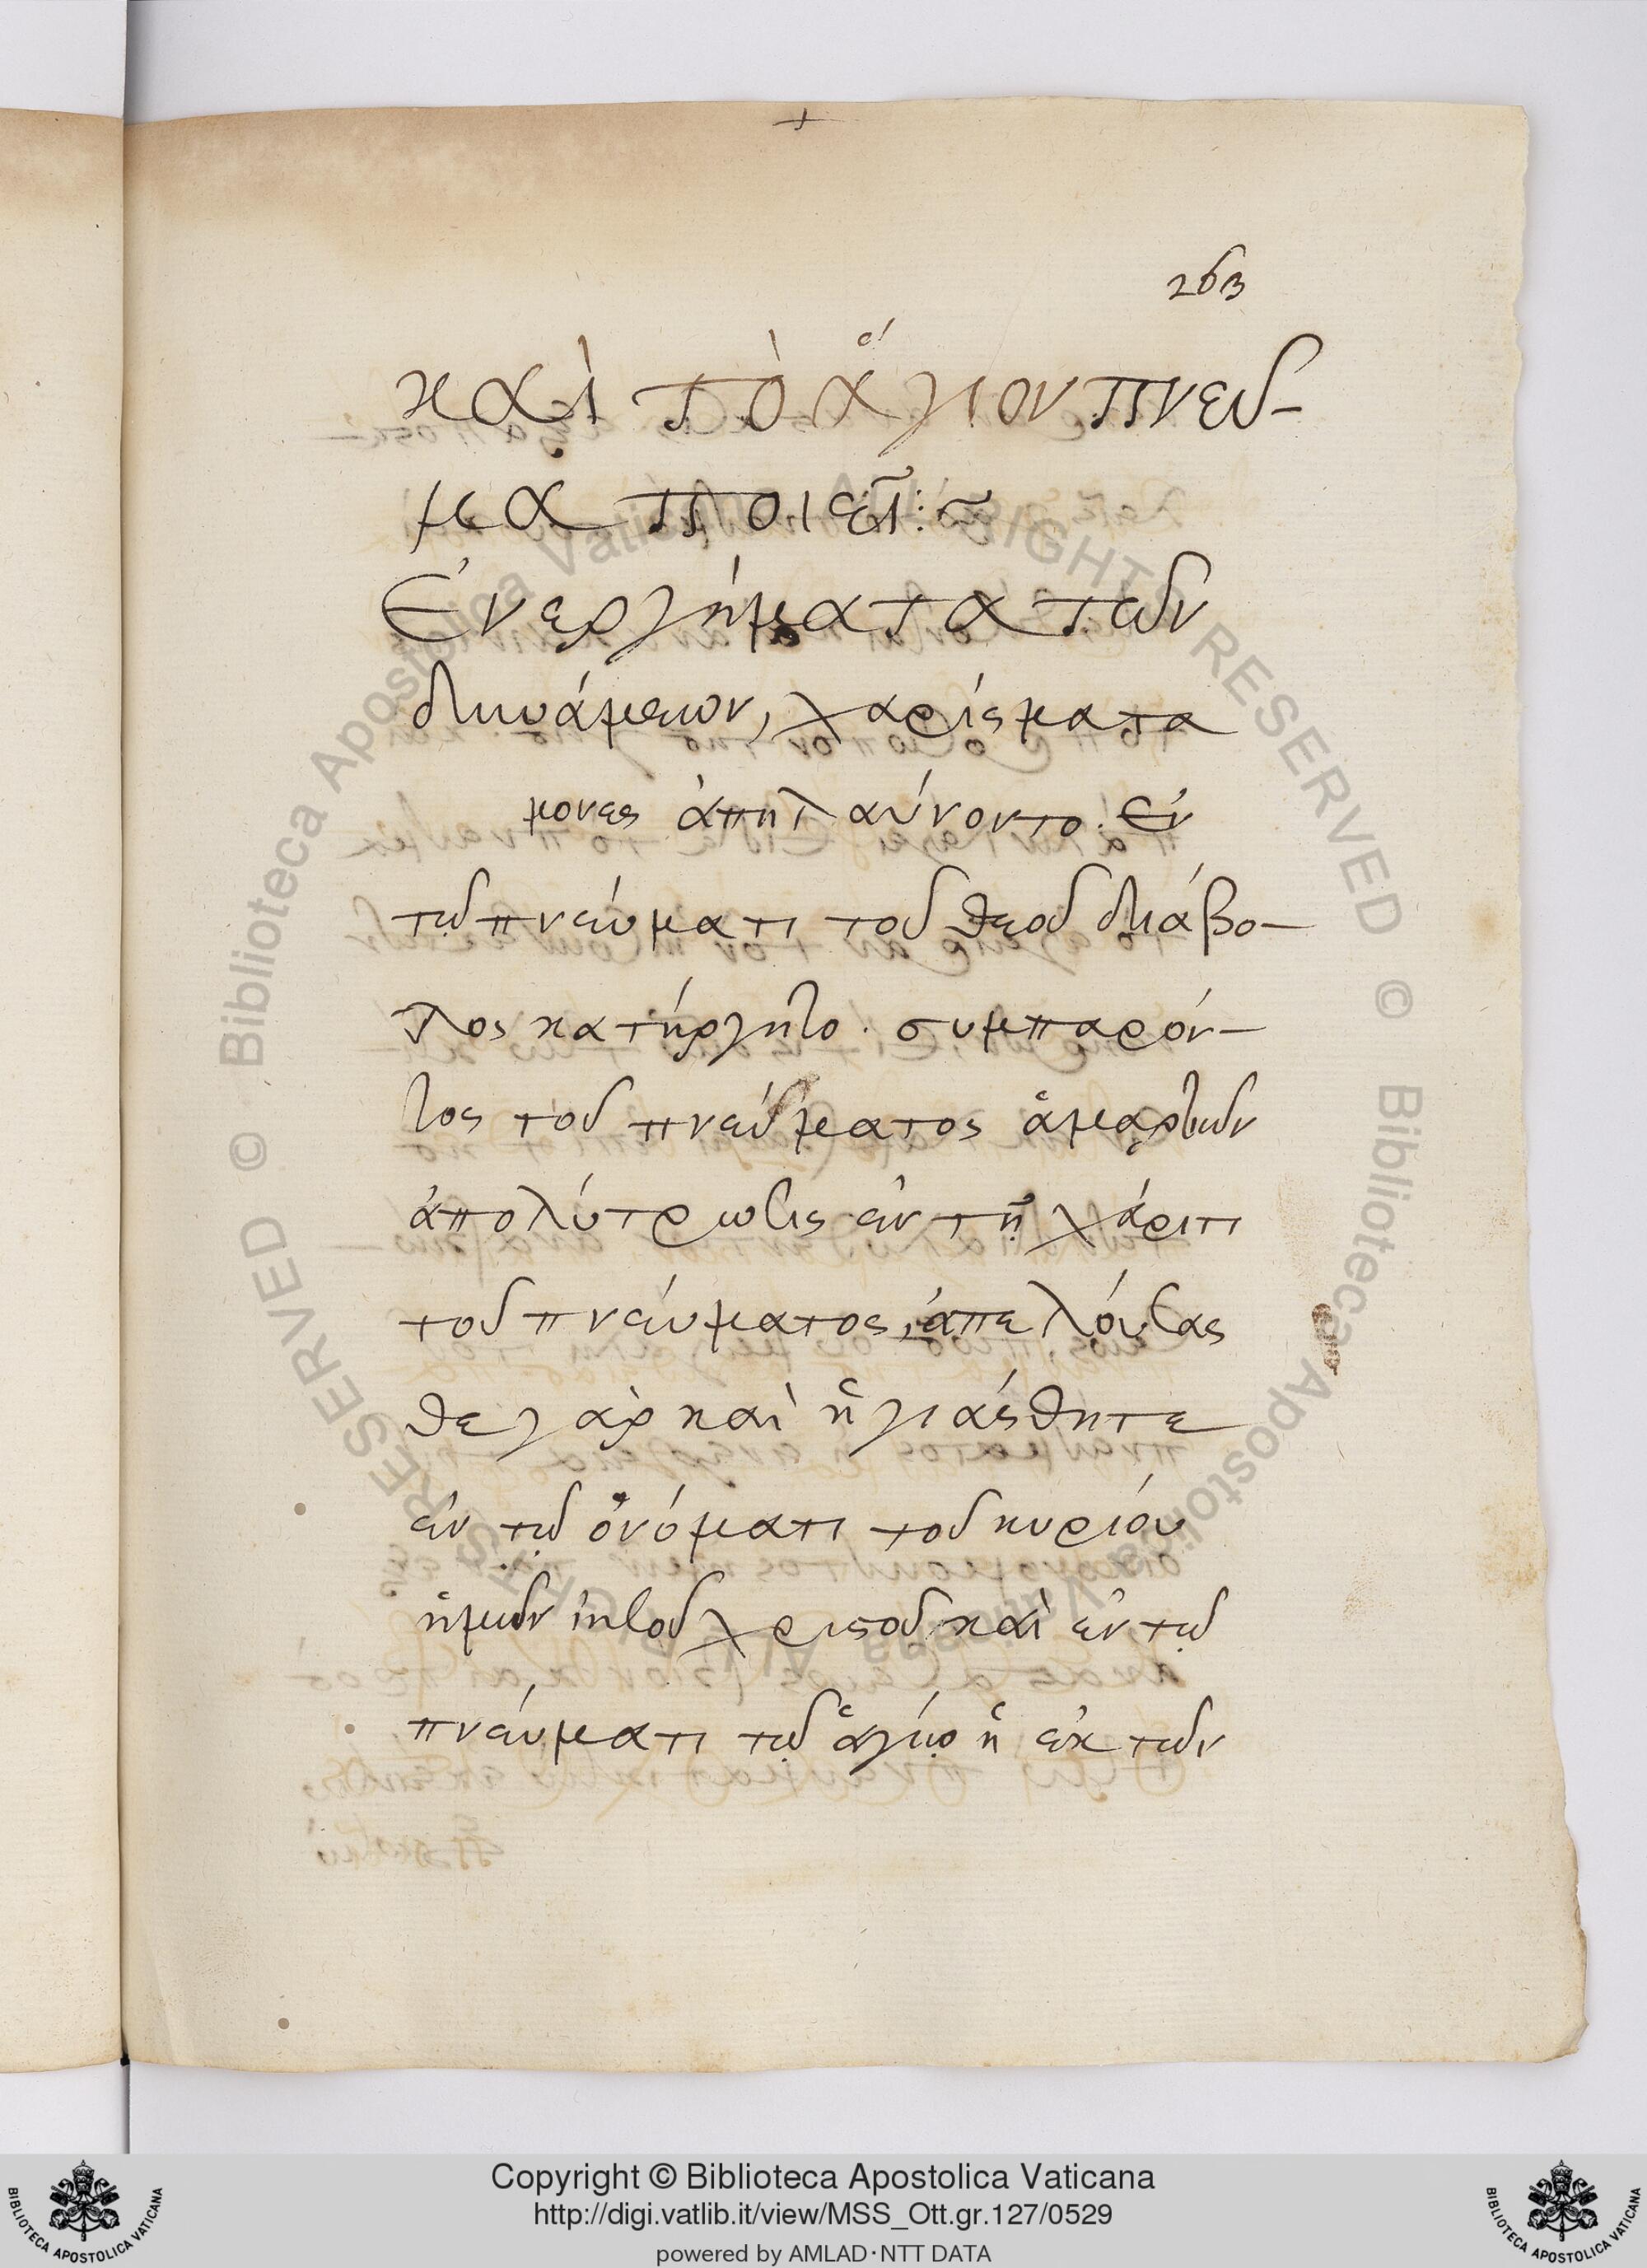 263
καὶ τὸ ἅγιον πνεῦ-
μα ποιεῖ:~
Ἐνεργήματα τῶν
δυνάμεων, χαρίσματα
μονες ἀπηλαύνοντο. Ἐν
τῷ πνεύματι τοῦ θεοῦ διάβο-
λος κατήργητο. συμπαρόν-
τος τοῦ πνεύματος ἁμαρτιῶν
ἀπολύτρωσις ἐν τῇ χάριτι
τοῦ πνεύματος, ἀπελούσασ
θε γὰρ καὶ ἡγιάσθητε
ἐν τῷ ὀνόματι τοῦ κυρίου
ἡμῶν ἰησοῦ χριστοῦ καὶ ἐν τῷ
πνεύματι τῷ ἁγίῳ ἡ ἐκ τῶν
© Biblioteca Apostolica Vaticana ALL RIGHTS RESERVED © Biblioteca Apostolica Vaticana ALL RIGHTS RESERVED
Copyright © Biblioteca Apostolica Vaticana
http://digi.vatlib.it/view/MSS_Ott.gr.127/0529
powered by AMLAD·NTT DATA
BIBLIOTECA APOSTOLICA VATICANA
BIBLIOTECA APOSTOLICA VATICANA